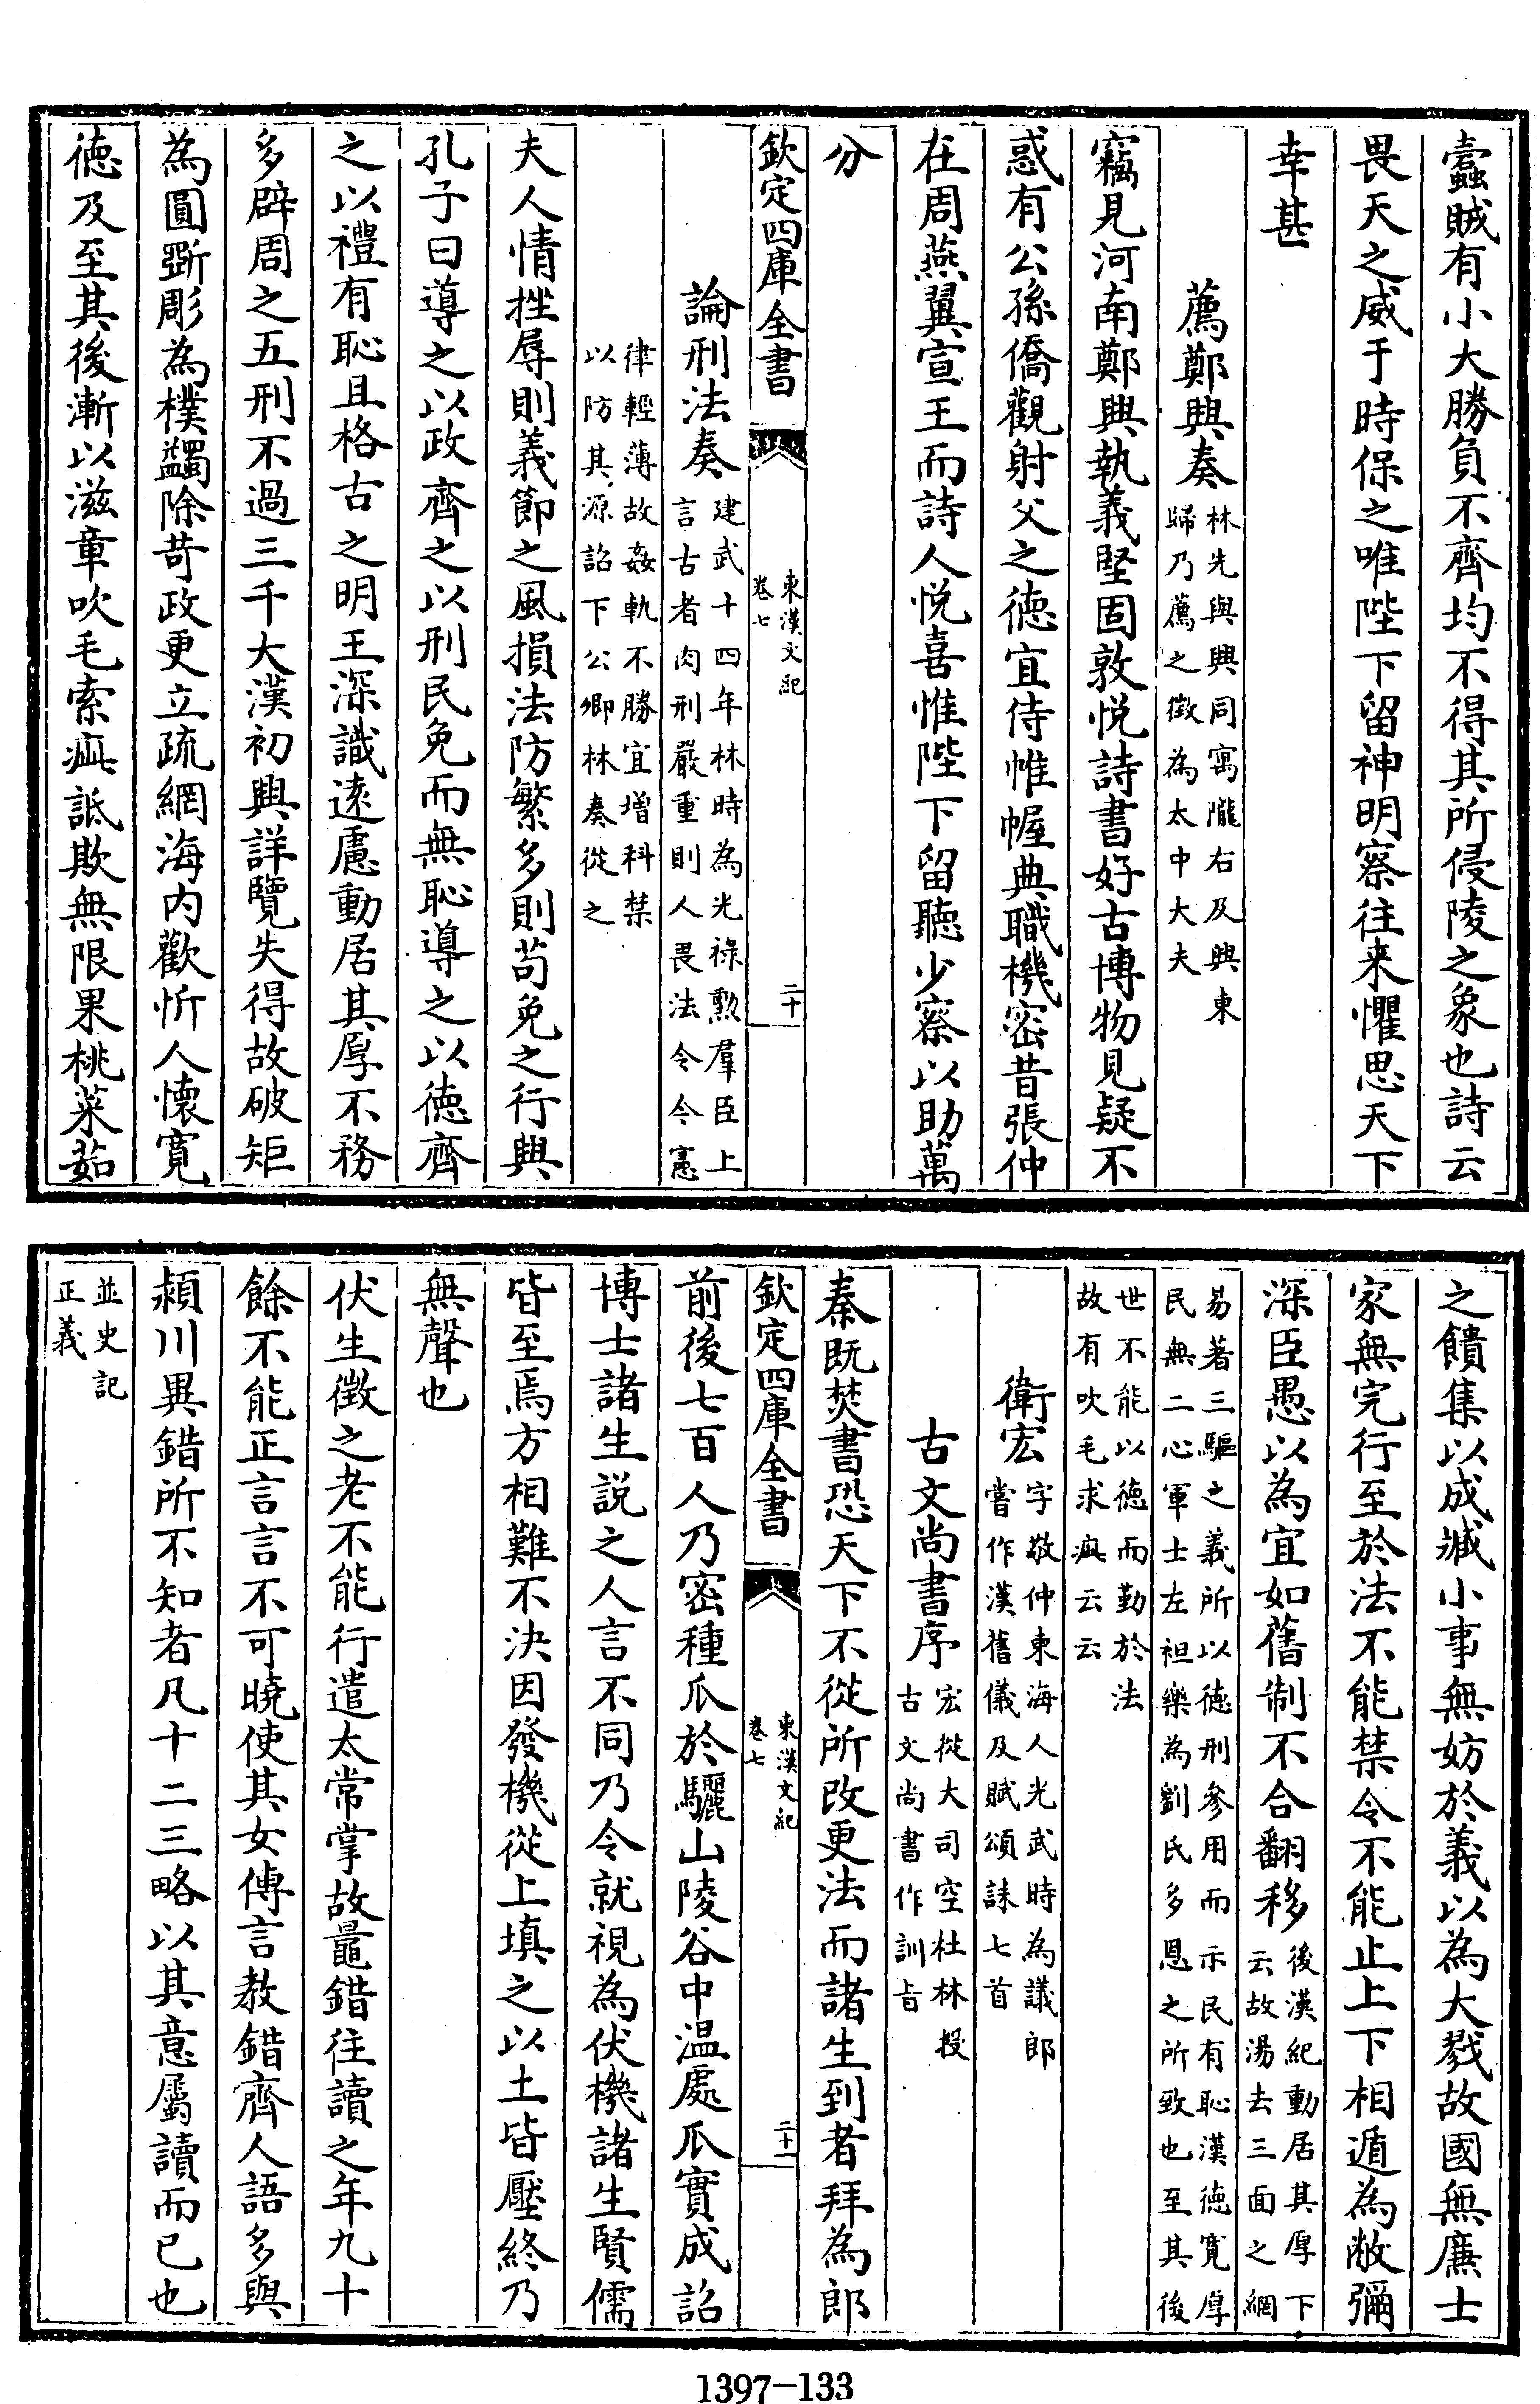 蠹賊有小大勝負不齊均不得其所侵陵之象也詩云
畏天之威于時保之唯陛下留神明察往来懼思天下
幸甚
薦鄭興奏
林先與興同寓隴右及興東
歸乃薦之徵為太中大夫
竊見河南鄭興執義堅固敦悦詩書好古博物見疑不
惑有公孫僑觀射父之德宜侍帷幄典職機密昔張仲
在周燕翼宣王而詩人悦喜惟陛下留聽少察以助萬
分
欽定四庫全書
東漢文紀
卷七
二十
論刑法奏
建武十四年林時為光祿勲羣臣上
言古者肉刑嚴重則人畏法令今憲
律輕薄故姦軌不勝宜增科禁
以防其源詔下公卿林奏從之
夫人情挫辱則義節之風損法防繁多則苟免之行興
孔子曰導之以政齊之以刑民免而無恥導之以德齊
之以禮有恥且格古之明王深識遠慮動居其厚不務
多辟周之五刑不過三千大漢初興詳覽失得故破矩
為圓斲彫為樸蠲除苛政更立疏網海内歡忻人懷寛
德及至其後漸以滋章吹毛索疵詆欺無限果桃菜茹
之饋集以成贓小事無妨於義以為大戮故國無廉士
家無完行至於法不能禁令不能止上下相遁為敝彌
深臣愚以為宜如舊制不合翻移
後漢紀動居其厚下
云故湯去三面之網
易著三驅之義所以德刑參用而示民有恥漢德寛厚
民無二心軍士左袒樂為劉氏多恩之所致也至其後
世不能以德而勤於法
故有吹毛求疵云云
衛宏
字敬仲東海人光武時為議郎
嘗作漢舊儀及賦頌誄七首
古文尚書序
宏從大司空杜林授
古文尚書作訓旨
秦既焚書恐天下不從所改更法而諸生到者拜為郎
欽定四庫全書
東漢文紀
卷七
二十一
前後七百人乃密種瓜於驪山陵谷中温處瓜實成詔
博士諸生説之人言不同乃令就視為伏機諸生賢儒
皆至焉方相難不決因發機從上填之以土皆壓終乃
無聲也
伏生徵之老不能行遣太常掌故鼂錯往讀之年九十
餘不能正言言不可曉使其女傳言教錯齊人語多與
潁川異錯所不知者凡十二三略以其意屬讀而已也
並史記
正義
1397-133